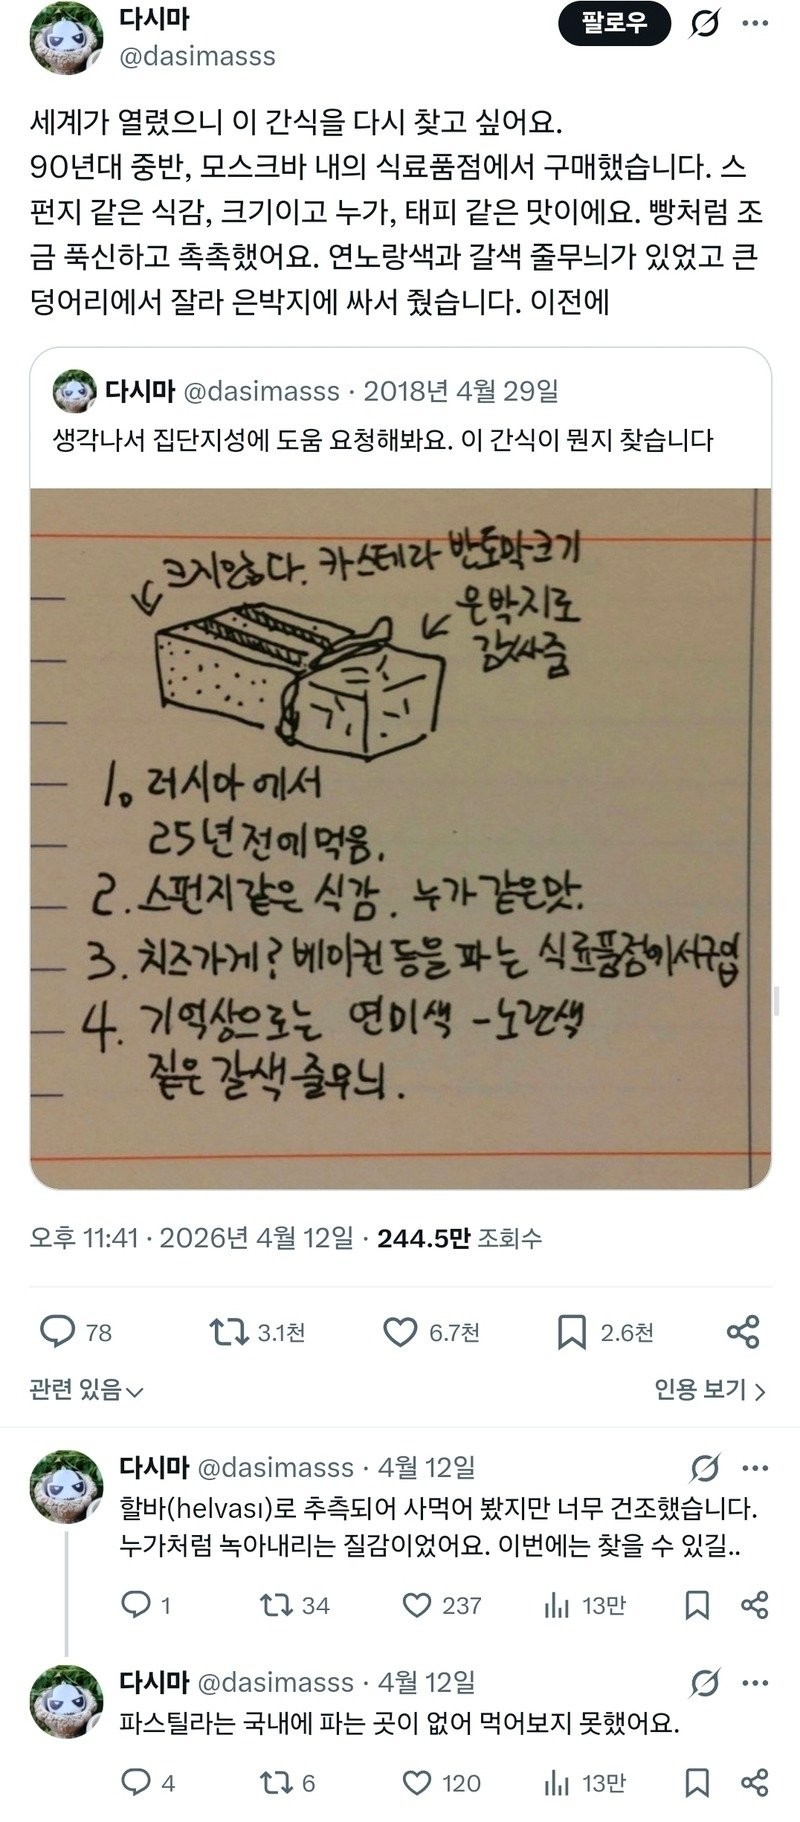 다시마
@dasimasss
팔로우
세계가 열렸으니 이 간식을 다시 찾고 싶어요.
90년대 중반, 모스크바 내의 식료품점에서 구매했습니다. 스
펀지 같은 식감, 크기이고 누가, 태피 같은 맛이에요. 빵처럼 조
금 푹신하고 촉촉했어요. 연노랑색과 갈색 줄무늬가 있었고 큰
덩어리에서 잘라 은박지에 싸서 줬습니다. 이전에
다시마 @dasimasss · 2018년 4월 29일
생각나서 집단지성에 도움 요청해봐요. 이 간식이 뭔지 찾습니다
크지않다. 카스테라 반토막크기
은박지로
감싸줌
1. 러시아에서
25년전에먹음.
2. 스펀지같은 식감. 누가같은맛.
3. 치즈가게? 베이컨 등을 파는 식료품점에서구입
4. 기억상으로는 연미색 - 노란색
짙은 갈색 줄무늬.
오후 11:41 · 2026년 4월 12일 · 244.5만 조회수
78 3.1천 6.7천 2.6천
관련 있음 인용 보기
다시마 @dasimasss · 4월 12일
할바(helvası)로 추측되어 사먹어 봤지만 너무 건조했습니다.
누가처럼 녹아내리는 질감이었어요. 이번에는 찾을 수 있길..
1 34 237 13만
다시마 @dasimasss · 4월 12일
파스틸라는 국내에 파는 곳이 없어 먹어보지 못했어요.
4 6 120 13만